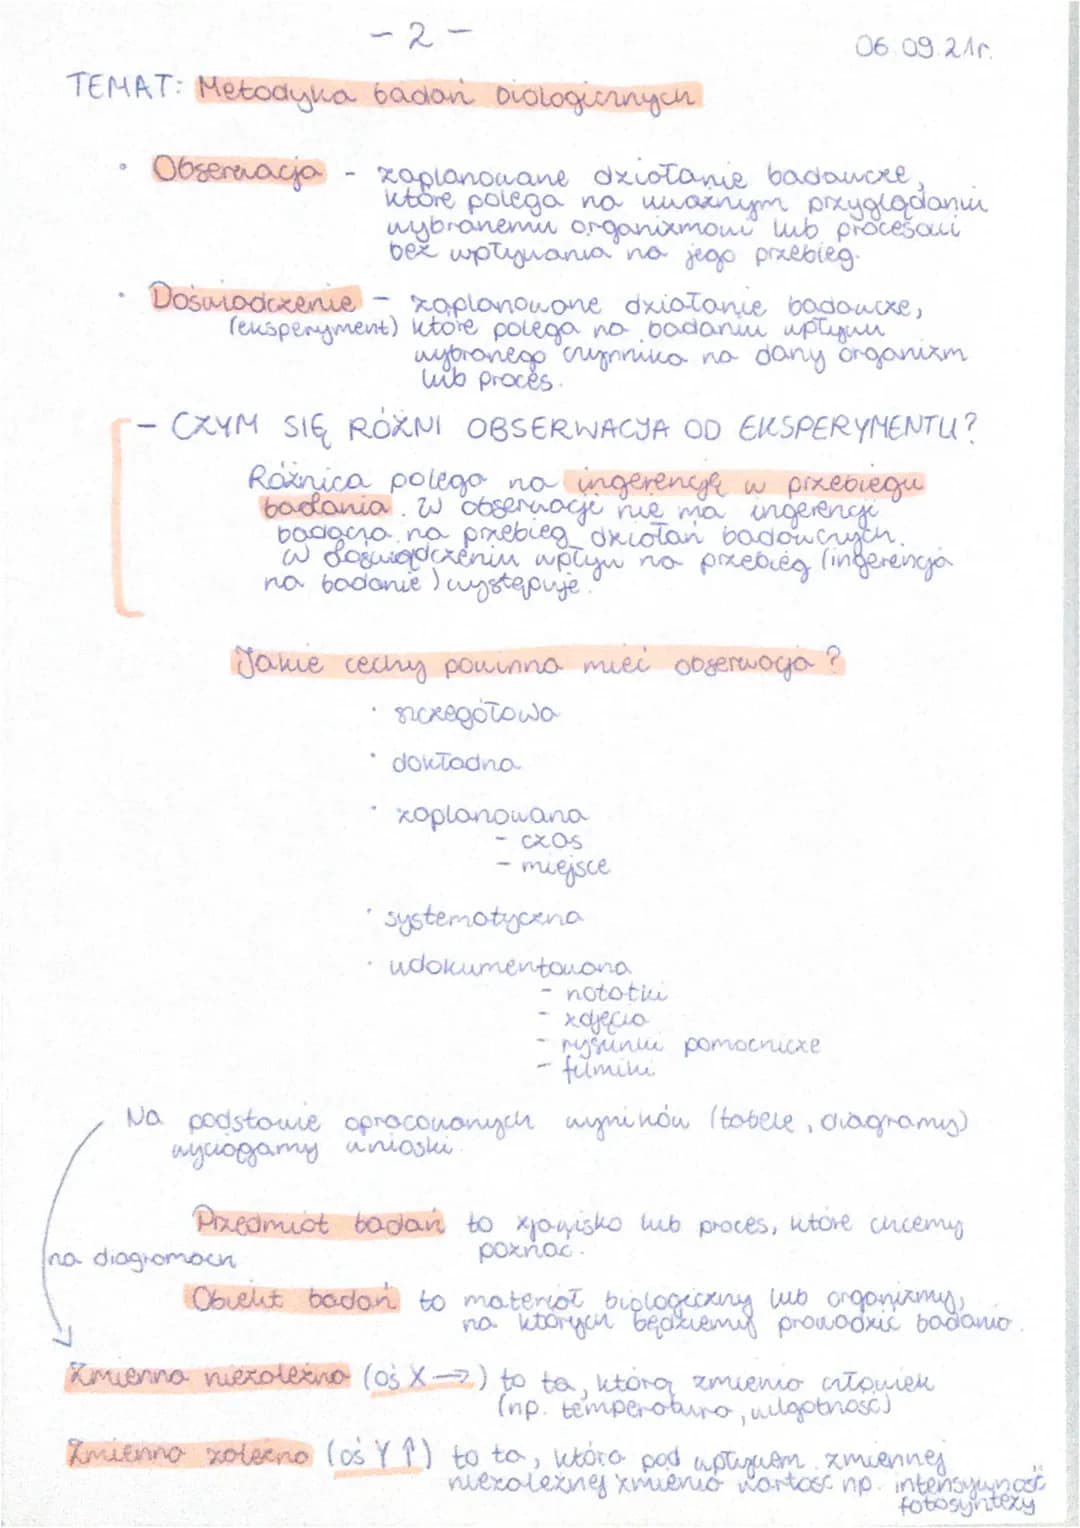 - 2 -
06.09.21r.
TEMAT: Metodyka badań biologicznych
• Obserwacja - zaplanowane działanie badawcze,
które polega na uważnym przyglądaniu
wybranemu organizmowi lub procesowi
bez wpływania na jego przebieg.
• Doświadczenie - zaplanowane działanie badawcze,
(eksperyment) które polega na badaniu wpływu
wybranego czynnika na dany organizm
lub proces.
- CZYM SIĘ RÓŻNI OBSERWACJA OD EKSPERYMENTU?
Różnica polega na ingerencję w przebiegu
badania. W obserwacji nie ma ingerencji
badacza na przebieg działań badawczych.
W doświadczeniu wpływ na przebieg (ingerencja
na badanie) występuje.
Jakie cechy powinna mieć obserwacja?
• szczegółowa
• dokładna
• zaplanowana
- czas
- miejsce
• systematyczna
• udokumentowana
- notatki
- zdjęcia
- rysunki pomocnicze
- filmiki
Na podstawie opracowanych wyników (tabele, diagramy)
wyciągamy wnioski.
Przedmiot badań to zjawisko lub proces, które chcemy
poznać.
na diagramach
Obiekt badań to materiał biologiczny lub organizmy,
na których będziemy prowadzić badania.
Zmienna niezależna (oś X →) to ta, którą zmienia człowiek
(np. temperatura, wilgotność)
Zmienna zależna (oś Y ↑) to ta, która pod wpływem zmiennej
niezależnej zmienia wartość np. intensywność
fotosyntezy